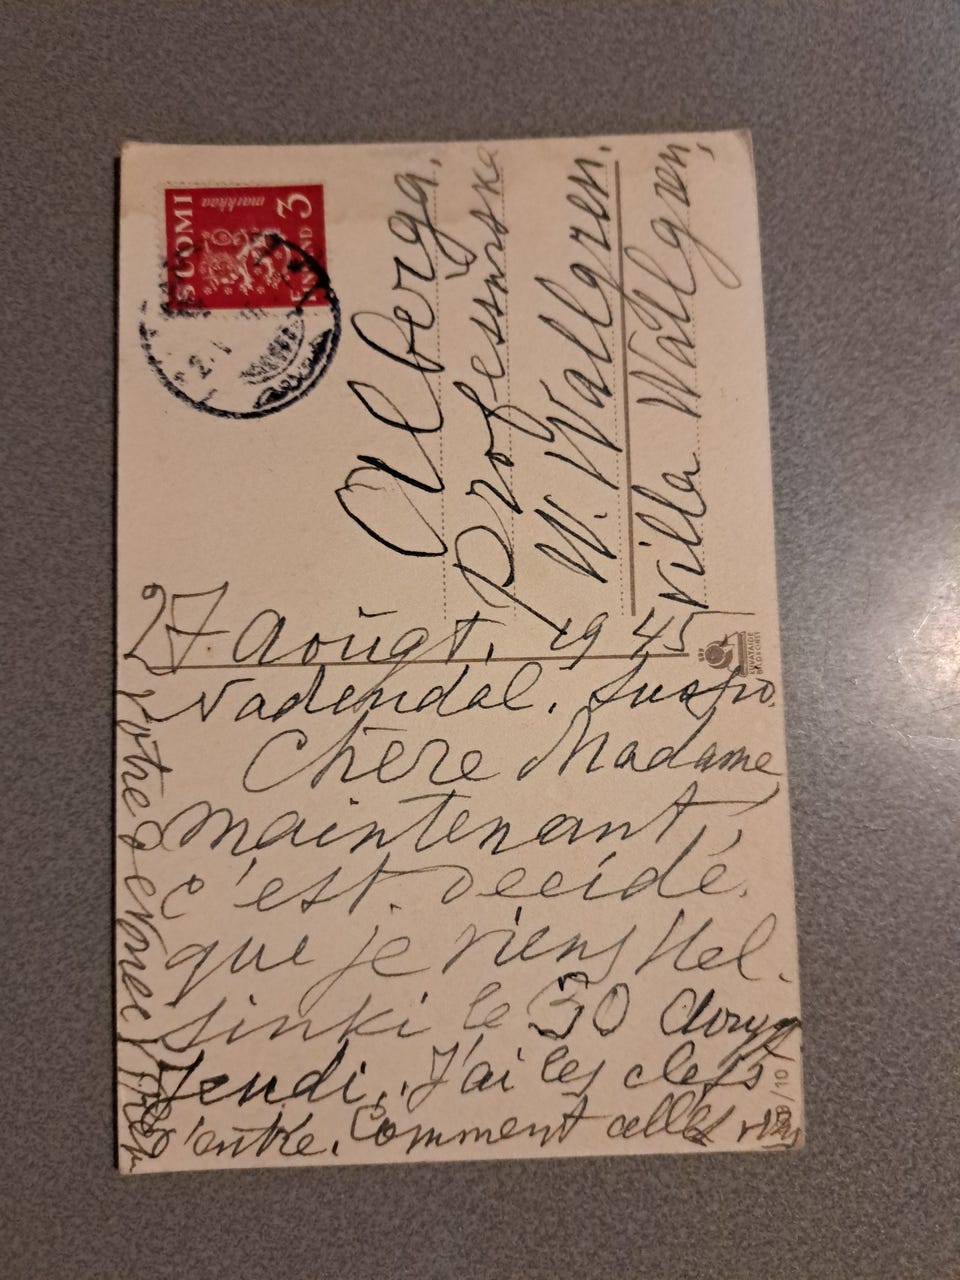 SUOMI
markkaa
3
FINLAND
Alberga.
Professorska
W. Wallgren.
Villa Wallgren,
27 Aougt. 1945
Nadendal.
Chère Madame
maintenant,
c'est decidé.
que je viens Hel.
sinki le 30 Aoug
Jeudi. J'ai les clefs
d'entré. Comment allés vous
Votre